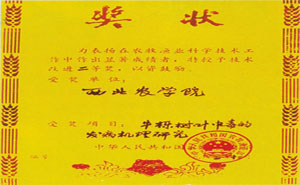 奖状
为表扬在农牧渔业科学技术工
作中作出显著成绩者，特授予技术
改进二等奖，以资鼓励。
受奖单位：
西北农学院
受奖项目：牛栎树叶中毒的
发病机理研究
中华人民共和国